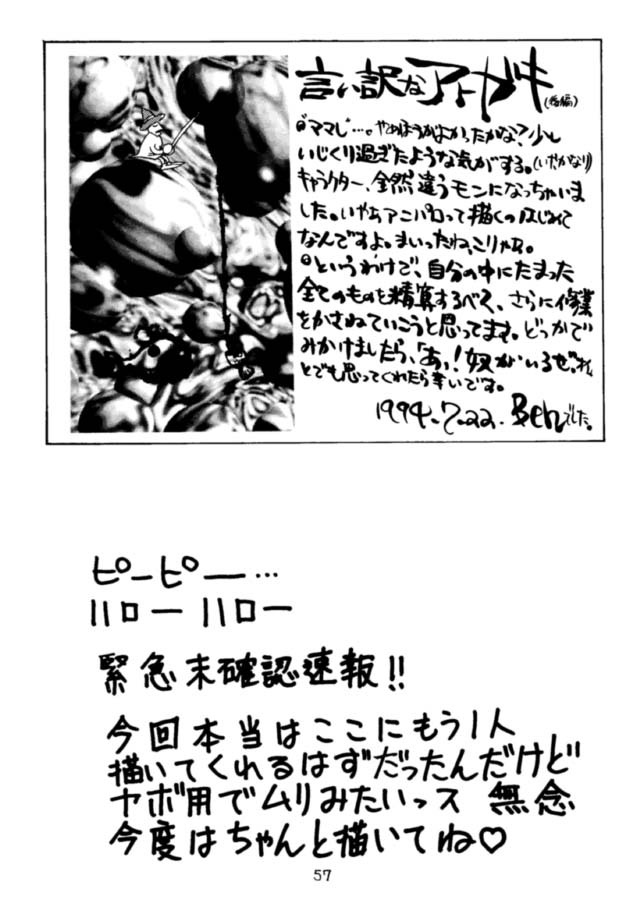 言い訳なアトガキ(後編)
・ママレ…。やめたほうがよかったかな?少し
いじくり過ぎたような気がする。(いやかなり)
キャラクター、全然違うモンになっちゃいま
した。いやぁアニパロって描くのはじめて
なんですよ。まいったね、こりゃぁ。
・というわけで、自分の中にたまった
全てのものを精算するべく、さらに修業
をかさねていこうと思ってます。どっかで
みかけましたら、「あ、!奴がいるぜ。」
とでも思ってくれたら幸いです。
1994.7.22. Benでした。
ピーピー…
ハローハロー
緊急未確認速報!!
今回本当はここにもう1人
描いてくれるはずだったんだけど
ヤボ用でムリみたいっス 無念
今度はちゃんと描いてね♡
57